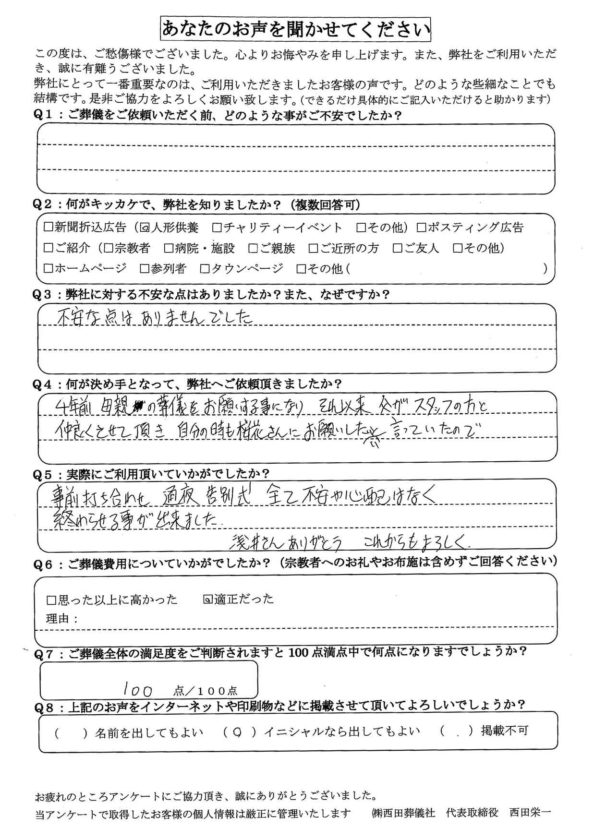 あなたのお声を聞かせてください
この度は、ご愁傷様でございました。心よりお悔やみを申し上げます。また、弊社をご利用いただ
き、誠に有難うございました。
弊社にとって一番重要なのは、ご利用いただきましたお客様の声です。どのような些細なことでも
結構です。是非ご協力をよろしくお願い致します。(できるだけ具体的にご記入いただけると助かります)
Q1:ご葬儀をご依頼いただく前、どのような事がご不安でしたか?
Q2:何がキッカケで、弊社を知りましたか?(複数回答可)
□新聞折込広告(☑人形供養 □チャリティーイベント □その他)□ポスティング広告
□ご紹介(□宗教者 □病院・施設 □ご親族 □ご近所の方 □ご友人 □その他)
□ホームページ □参列者 □タウンページ □その他( )
Q3:弊社に対する不安な点はありましたか?また、なぜですか?
不安な点はありませんでした
Q4:何が決め手となって、弊社へご依頼頂きましたか?
4年前 母親の葬儀をお願いする事になり それ以来 父がスタッフの方と
仲良くさせて頂き 自分の時も桜花さんにお願いしたいと言っていたので
Q5:実際にご利用頂いていかがでしたか?
事前打ち合わせ 通夜 告別式 全て不安や心配はなく
終わらせる事が出来ました
浅井さんありがとう これからもよろしく
Q6:ご葬儀費用についていかがでしたか?(宗教者へのお礼やお布施は含めずご回答ください)
□思った以上に高かった ☑適正だった
理由:
Q7:ご葬儀全体の満足度をご判断されますと100点満点中で何点になりますでしょうか?
100 点/100点
Q8:上記のお声をインターネットや印刷物などに掲載させて頂いてよろしいでしょうか?
( )名前を出してもよい (○)イニシャルなら出してもよい ( )掲載不可
お疲れのところアンケートにご協力頂き、誠にありがとうございました。
当アンケートで取得したお客様の個人情報は厳正に管理いたします ㈱西田葬儀社 代表取締役 西田栄一